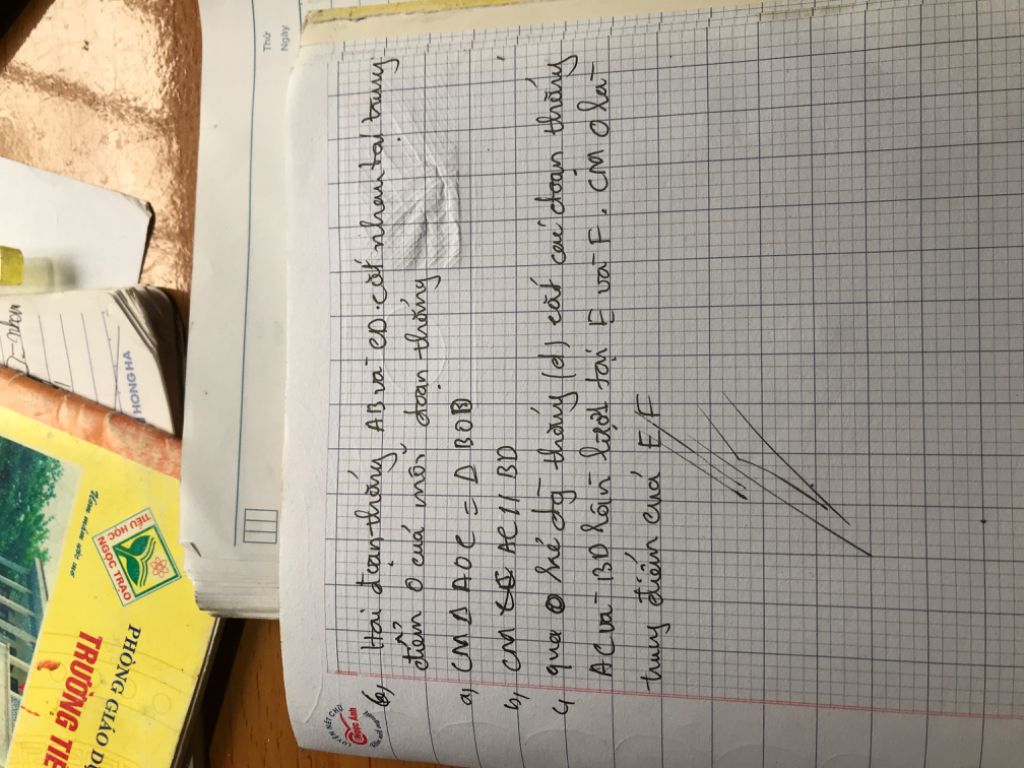 6) Hai đoạn thẳng AB và CD cắt nhau tại trung
điểm O của mỗi đoạn thẳng
a) CM Δ AOC = Δ BOD
b) CM AC // BD
c) qua O kẻ đg thẳng (d) cắt các đoạn thẳng
AC và BD lần lượt tại E và F. CM O là
trung điểm của EF
Thứ
Ngày
HONG HA
TIỂU HỌC
NGỌC TRẠO
PHÒNG GIÁO DỤ
TRƯỜNG TIỂ
LUYỆN NÉT CHỮ